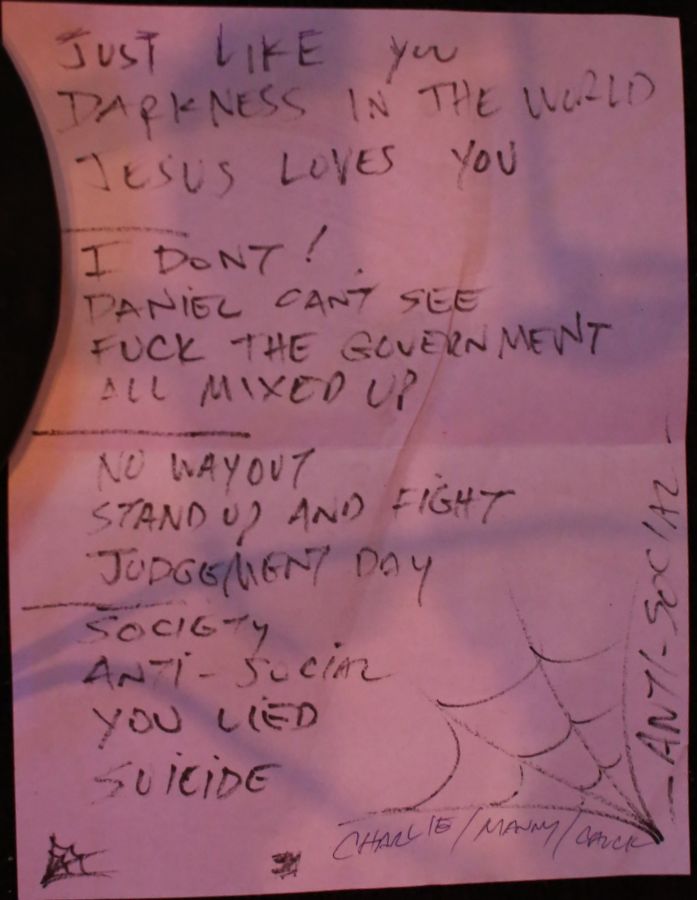 JUST LIKE YOU
DARKNESS IN THE WORLD
JESUS LOVES YOU
I DONT!
DANIEL CANT SEE
FUCK THE GOVERNMENT
ALL MIXED UP
NO WAY OUT
STAND UP AND FIGHT
JUDGEMENT DAY
SOCIETY
ANTI-SOCIAL
YOU LIED
SUICIDE
-ANTI-SOCIAL-
CHARLIE/MANNY/CHUCK